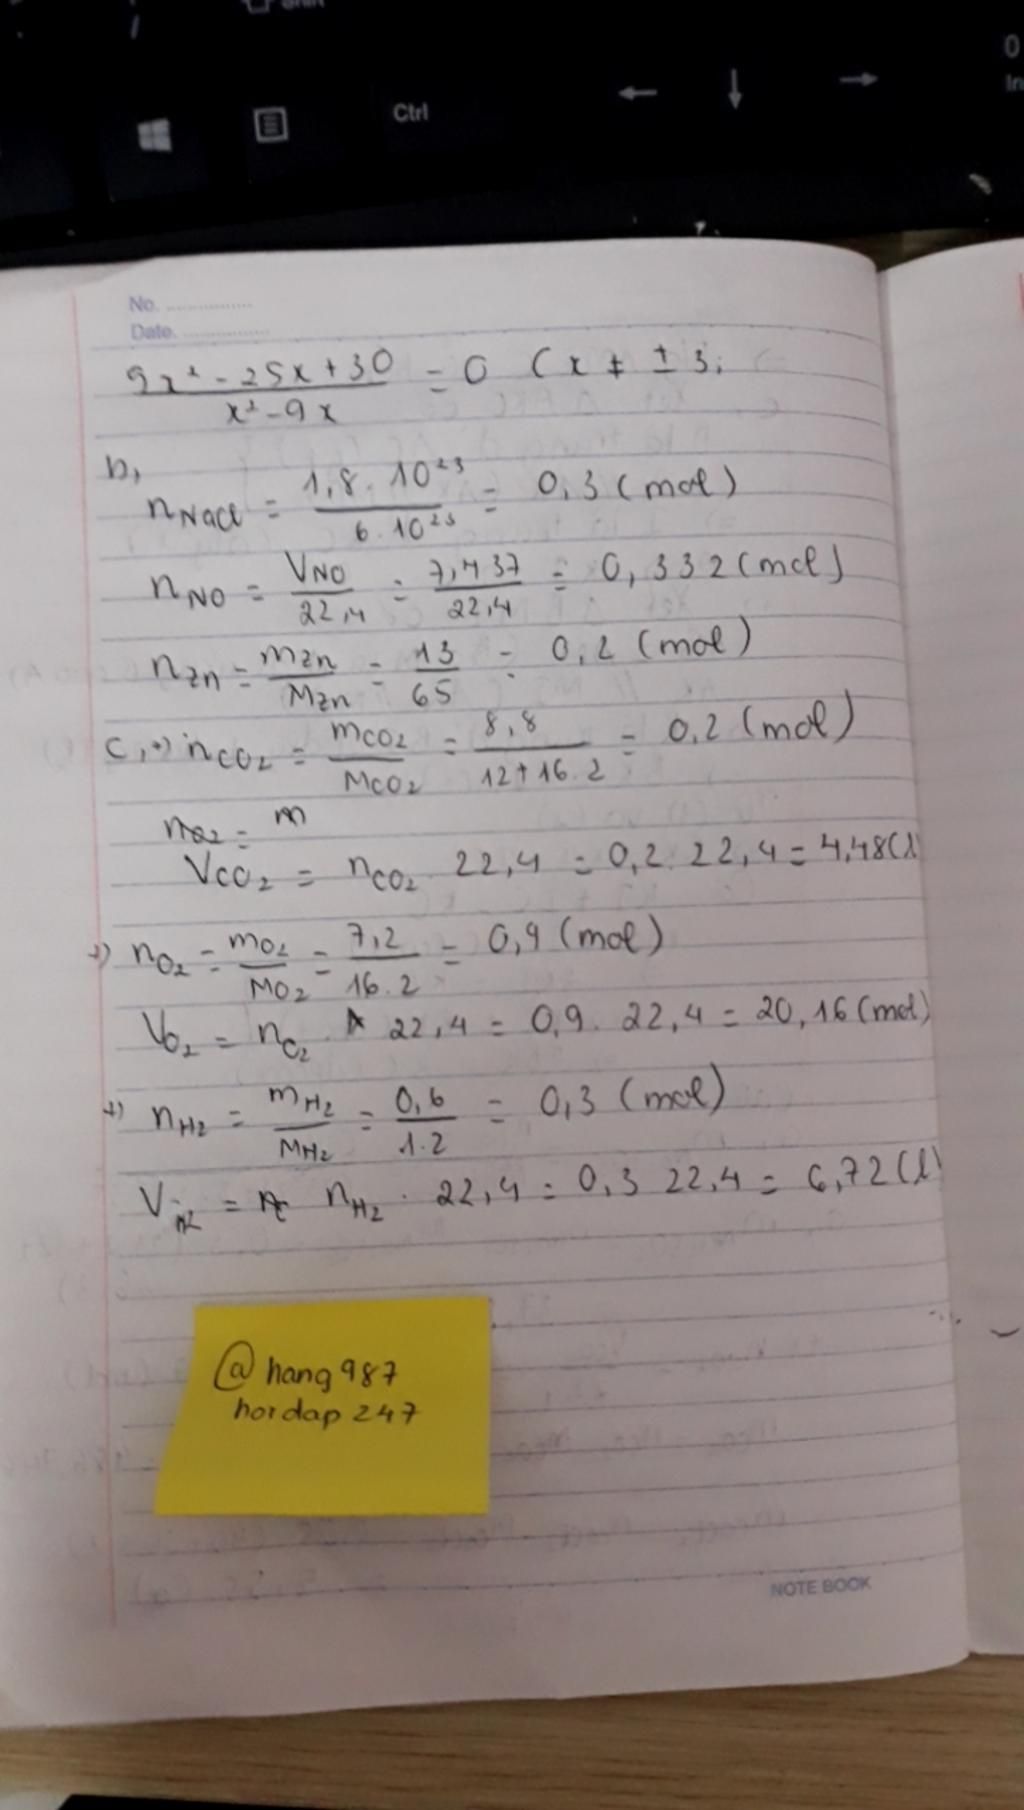 Ctrl
No. ................
Date. ................
9x² - 25x + 30 / x² - 9x = 0 (x ≠ ± 3;
b,
nNaCl = 1,8 . 10²³ / 6 . 10²³ = 0,3 (mol)
nNO = VNO / 22,4 = 7,437 / 22,4 = 0,332 (mol)
nZn = mZn / MZn = 13 / 65 = 0,2 (mol)
c, +) nCO₂ = mCO₂ / MCO₂ = 8,8 / 12+16.2 = 0,2 (mol)
nO₂ = m
VCO₂ = nCO₂ . 22,4 = 0,2 . 22,4 = 4,48 (l
+) nO₂ = mO₂ / MO₂ = 7,2 / 16.2 = 0,9 (mol)
VO₂ = nO₂ . 22,4 = 0,9 . 22,4 = 20,16 (mol)
+) nH₂ = mH₂ / MH₂ = 0,6 / 1.2 = 0,3 (mol)
V = nH₂ . 22,4 = 0,3 22,4 = 6,72 (l)
@hang987
hoidap247
NOTE BOOK